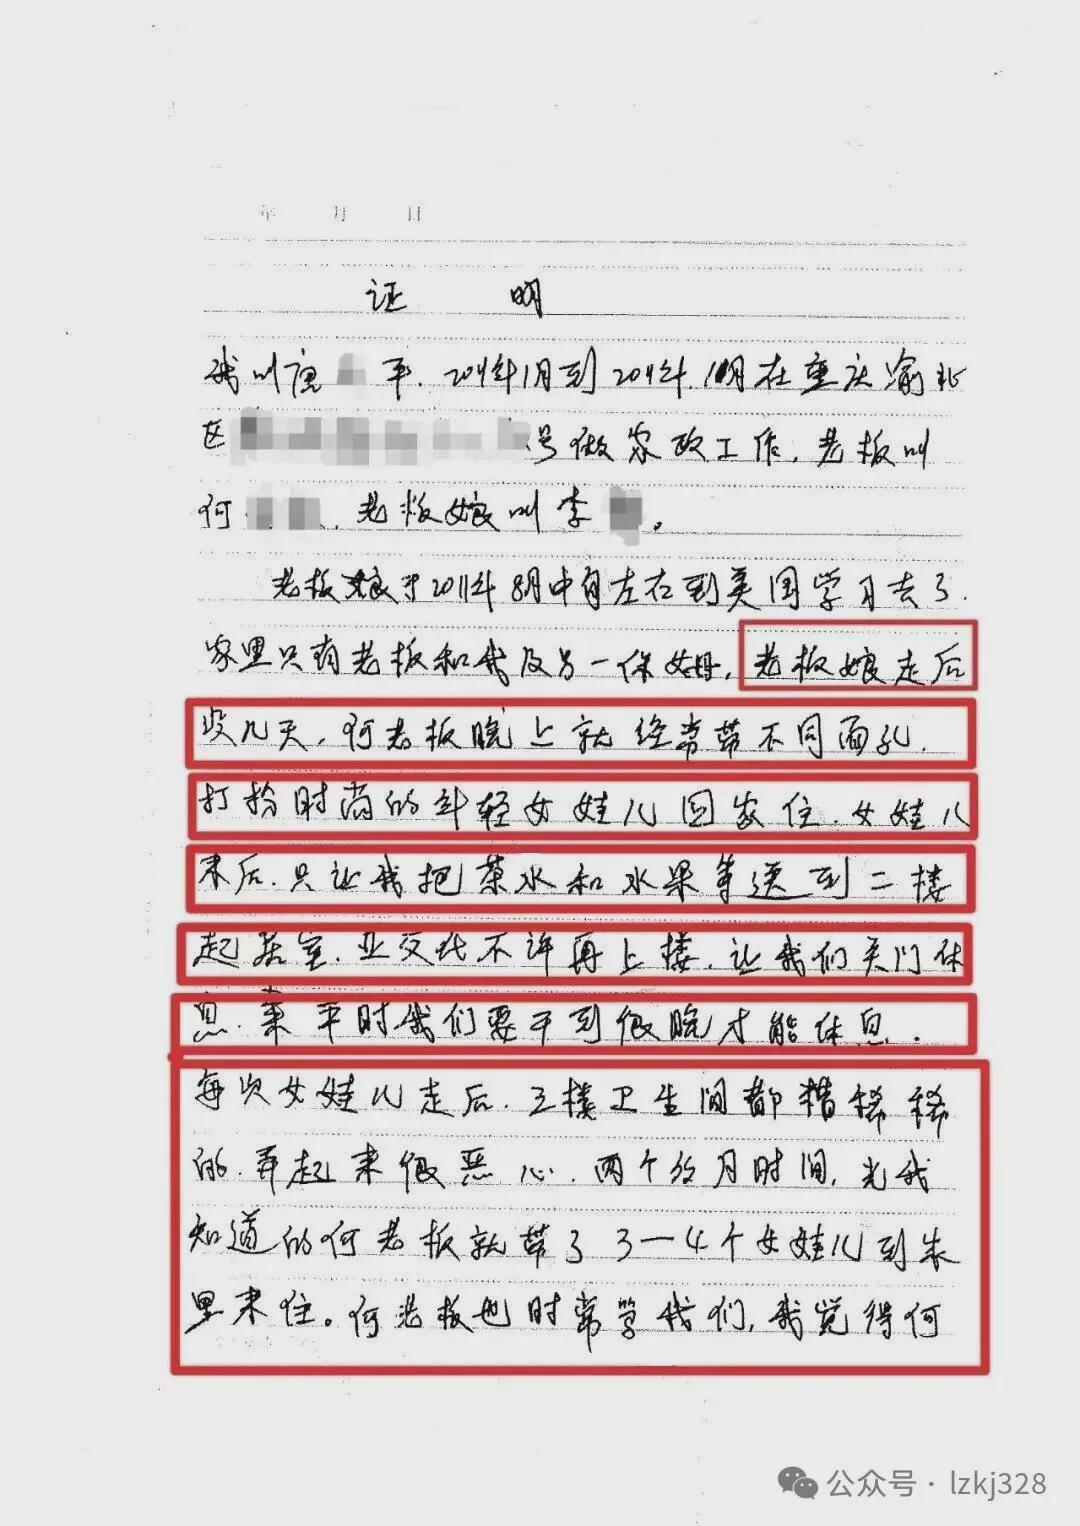 年 月 日
证 明
我叫唐 平.2011年1月到2011年.10月在重庆渝北
区 号做家政工作.老板叫
何 .老板娘叫李 。
老板娘于2011年8月中旬左右到美国学习去了.
家里只有老板和我及另一保姆.老板娘走后
没几天.何老板晚上就经常带不同面孔.
打扮时尚的年轻女娃儿回家住.女娃儿
来后.只让我把茶水和水果等送到二楼
起居室.并交代不许再上楼.让我们关门休
息.来平时我们要干到很晚才能休息.
每次女娃儿走后.三楼卫生间都糟稀稀
的.弄起来很恶心.两个多月时间.光我
知道的何老板就带了3—4个女娃儿到家
里来住。何老板也时常 我们.我觉得何
公众号 · lzkj328